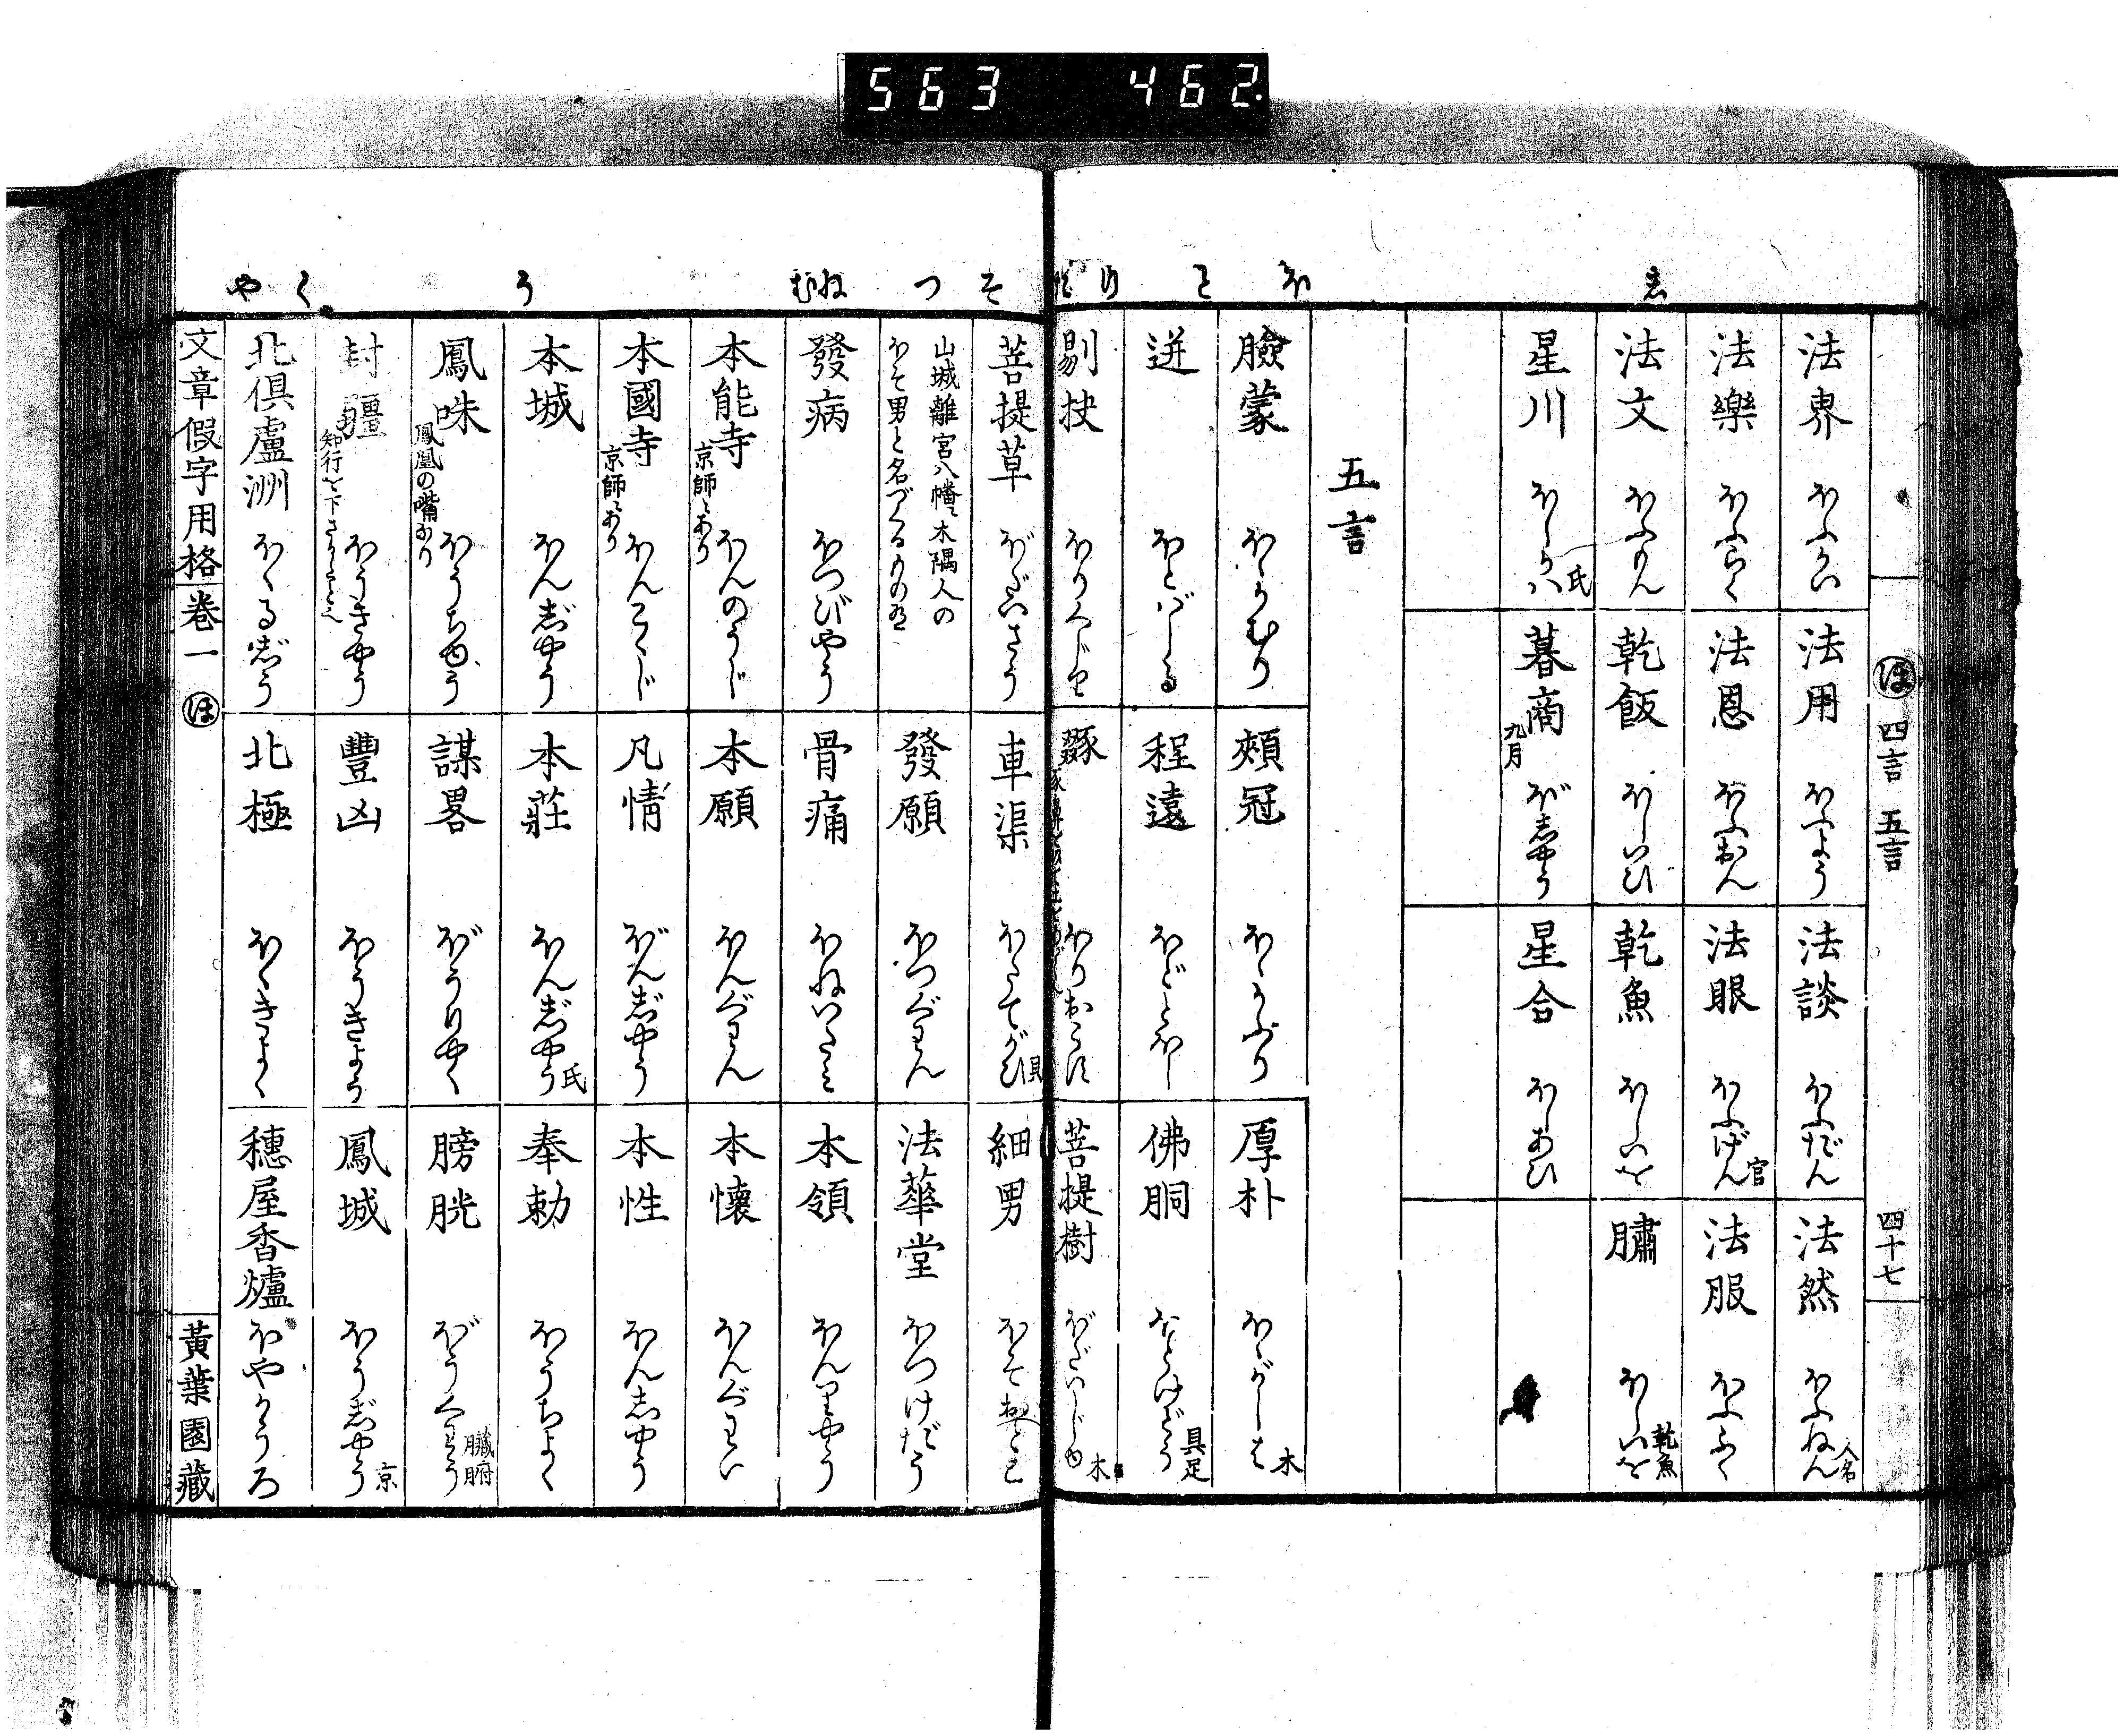 563 462.
ほ 四言 五言 四十七
法界 ほふかい
法用 ほふよう
法談 ほふだん
法然 ほふねん 人名
法樂 ほふらく
法恩 ほふおん
法眼 ほふげん 官
法服 ほふふく
法文 ほふもん
乾飯 ほしいひ
乾魚 ほしいを
鱐 ほしいを 乾魚
星川 ほしかハ 氏
暮商 九月 ぼしやう
星合 ほしあひ
五言
臉蒙 ほゝかむり
頰冠 ほゝかふり
厚朴 ほゝがしは 木
迸 ほとばしる
程遠 ほどとほし
佛胴 ほとけどう 具足
剔抉 ほりくじり
ほりおこす
菩提樹 ぼだいじゆ 木
そ つ ねむ う く や
菩提草 ぼだいさう
車渠 ほたてがひ 貝
細男 ほそおとこ
山城離宮八幡ニ木隅人の
ほそ男と名づくるもの有
發願 ほつぐわん
法華堂 ほつけだう
發病 ほつびやう
骨痛 ほねいたみ
本領 ほんりやう
本能寺 京師ニあり ほんのうじ
本願 ほんぐわん
本懐 ほんぐわい
本國寺 京師ニあり ほんこくじ
凡情 ぼんじやう
本性 ほんしやう
本城 ほんじやう
本莊 ほんじやう 氏
奉勅 ほうちよく
鳳咮 鳳凰の嘴なり ほうちゆう
謀畧 ぼうりやく
膀胱 ぼうくわう 臟腑
封疆 ほうきやう
豐凶 ほうきよう
鳳城 ほうじやう 京
北俱盧洲 ほくるじう
北極 ほくきよく
穗屋香爐 ほやかうろ
文章假字用格 卷一 ほ 黃葉園藏